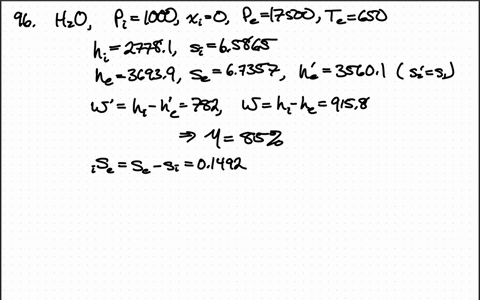 96. H₂O, Pᵢ=1000, xᵢ=0, Pₑ=17500, Tₑ=650
hᵢ=2778.1, sᵢ=6.5865
hₑ=3693.9, sₑ=6.7357, h'ₑ=3560.1 (sₑ'=sᵢ)
W'=hᵢ-h'ₑ=782, W=hᵢ-hₑ=915.8
⇒ η=85%
ᵢSₑ=Sₑ-Sᵢ=0.1492